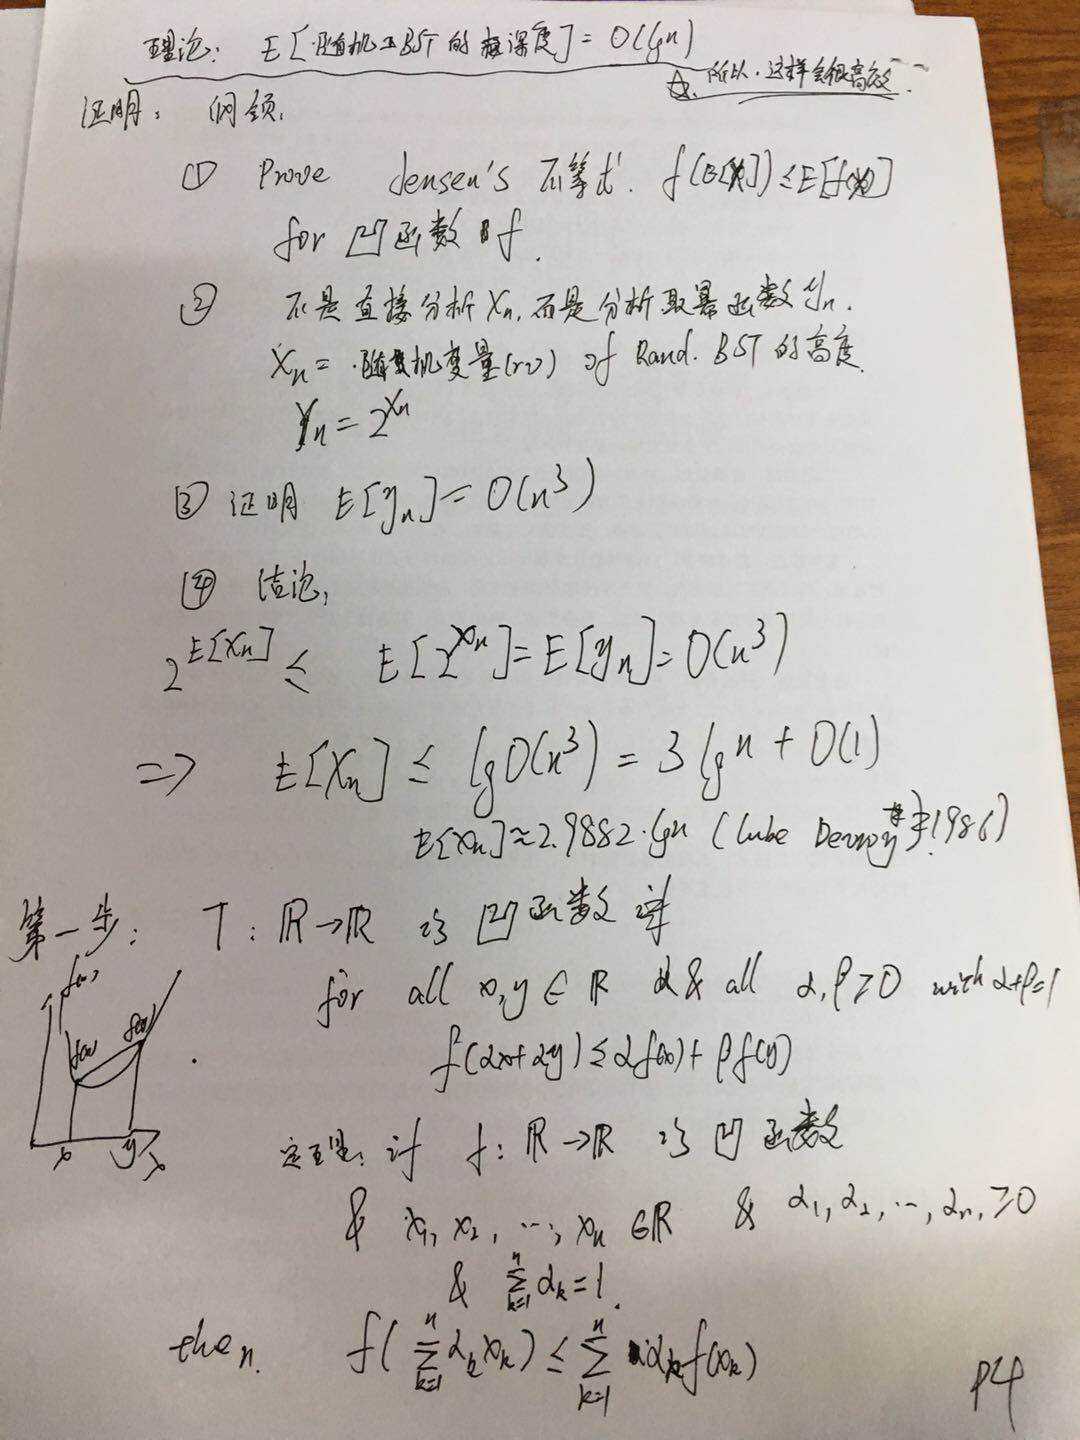 理论: E[随机化BST的深度]=O(lgn)
☆. 所以.这样会很高效.
证明: 纲领:
① Prove Jensen's 不等式. f(E[X])≤E[f(X)]
for 凹函数 f.
② 不是直接分析Xn,而是分析取幂函数yn.
Xn= 随机变量(rv) of Rand. BST 的高度.
Yn=2^Xn
③ 证明 E[yn]=O(n³)
④ 结论:
2^E[Xn] ≤ E[2^Xn]=E[yn]=O(n³)
=> E[Xn] ≤ lgO(n³) = 3lgn+O(1)
E[Xn]≈2.9882·lgn ( 1986)
第一步: f: ℝ→ℝ 为 凹函数
for all x,y∈ℝ & all α,β≥0 with α+β=1
f(αx+αy)≤αf(x)+βf(y)
f(x)
f(x) f(y)
x y x
定理: if f: ℝ→ℝ 为 凹函数
& x₁, x₂, …, xn ∈ℝ & α₁, α₂, …, αn, ≥0
& ∑_{k=1}^{n} αk=1.
then. f(∑_{k=1}^{n} αk xk) ≤ ∑_{k=1}^{n} αk f(xk)
P4